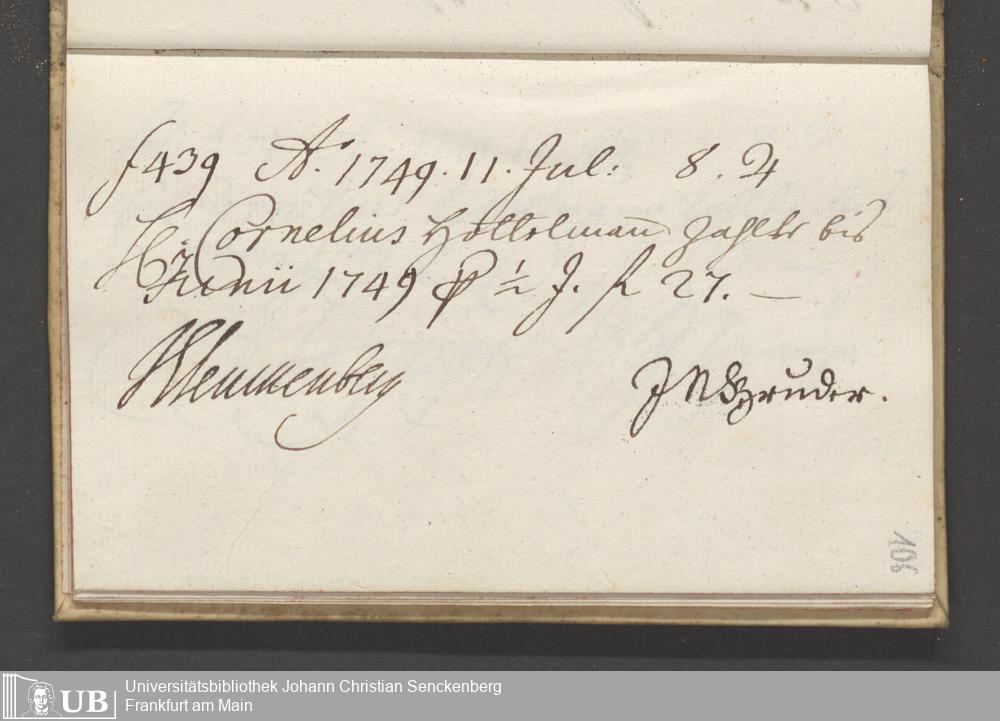 f 439 Aº. 1749. 11. Jul: 8. 24
H: Cornelius Hottelman̄ zahlte bis
Junii 1749 ⅌ ½ J. fl 27. —
JNBruder.
106
UB
Universitätsbibliothek Johann Christian Senckenberg
Frankfurt am Main